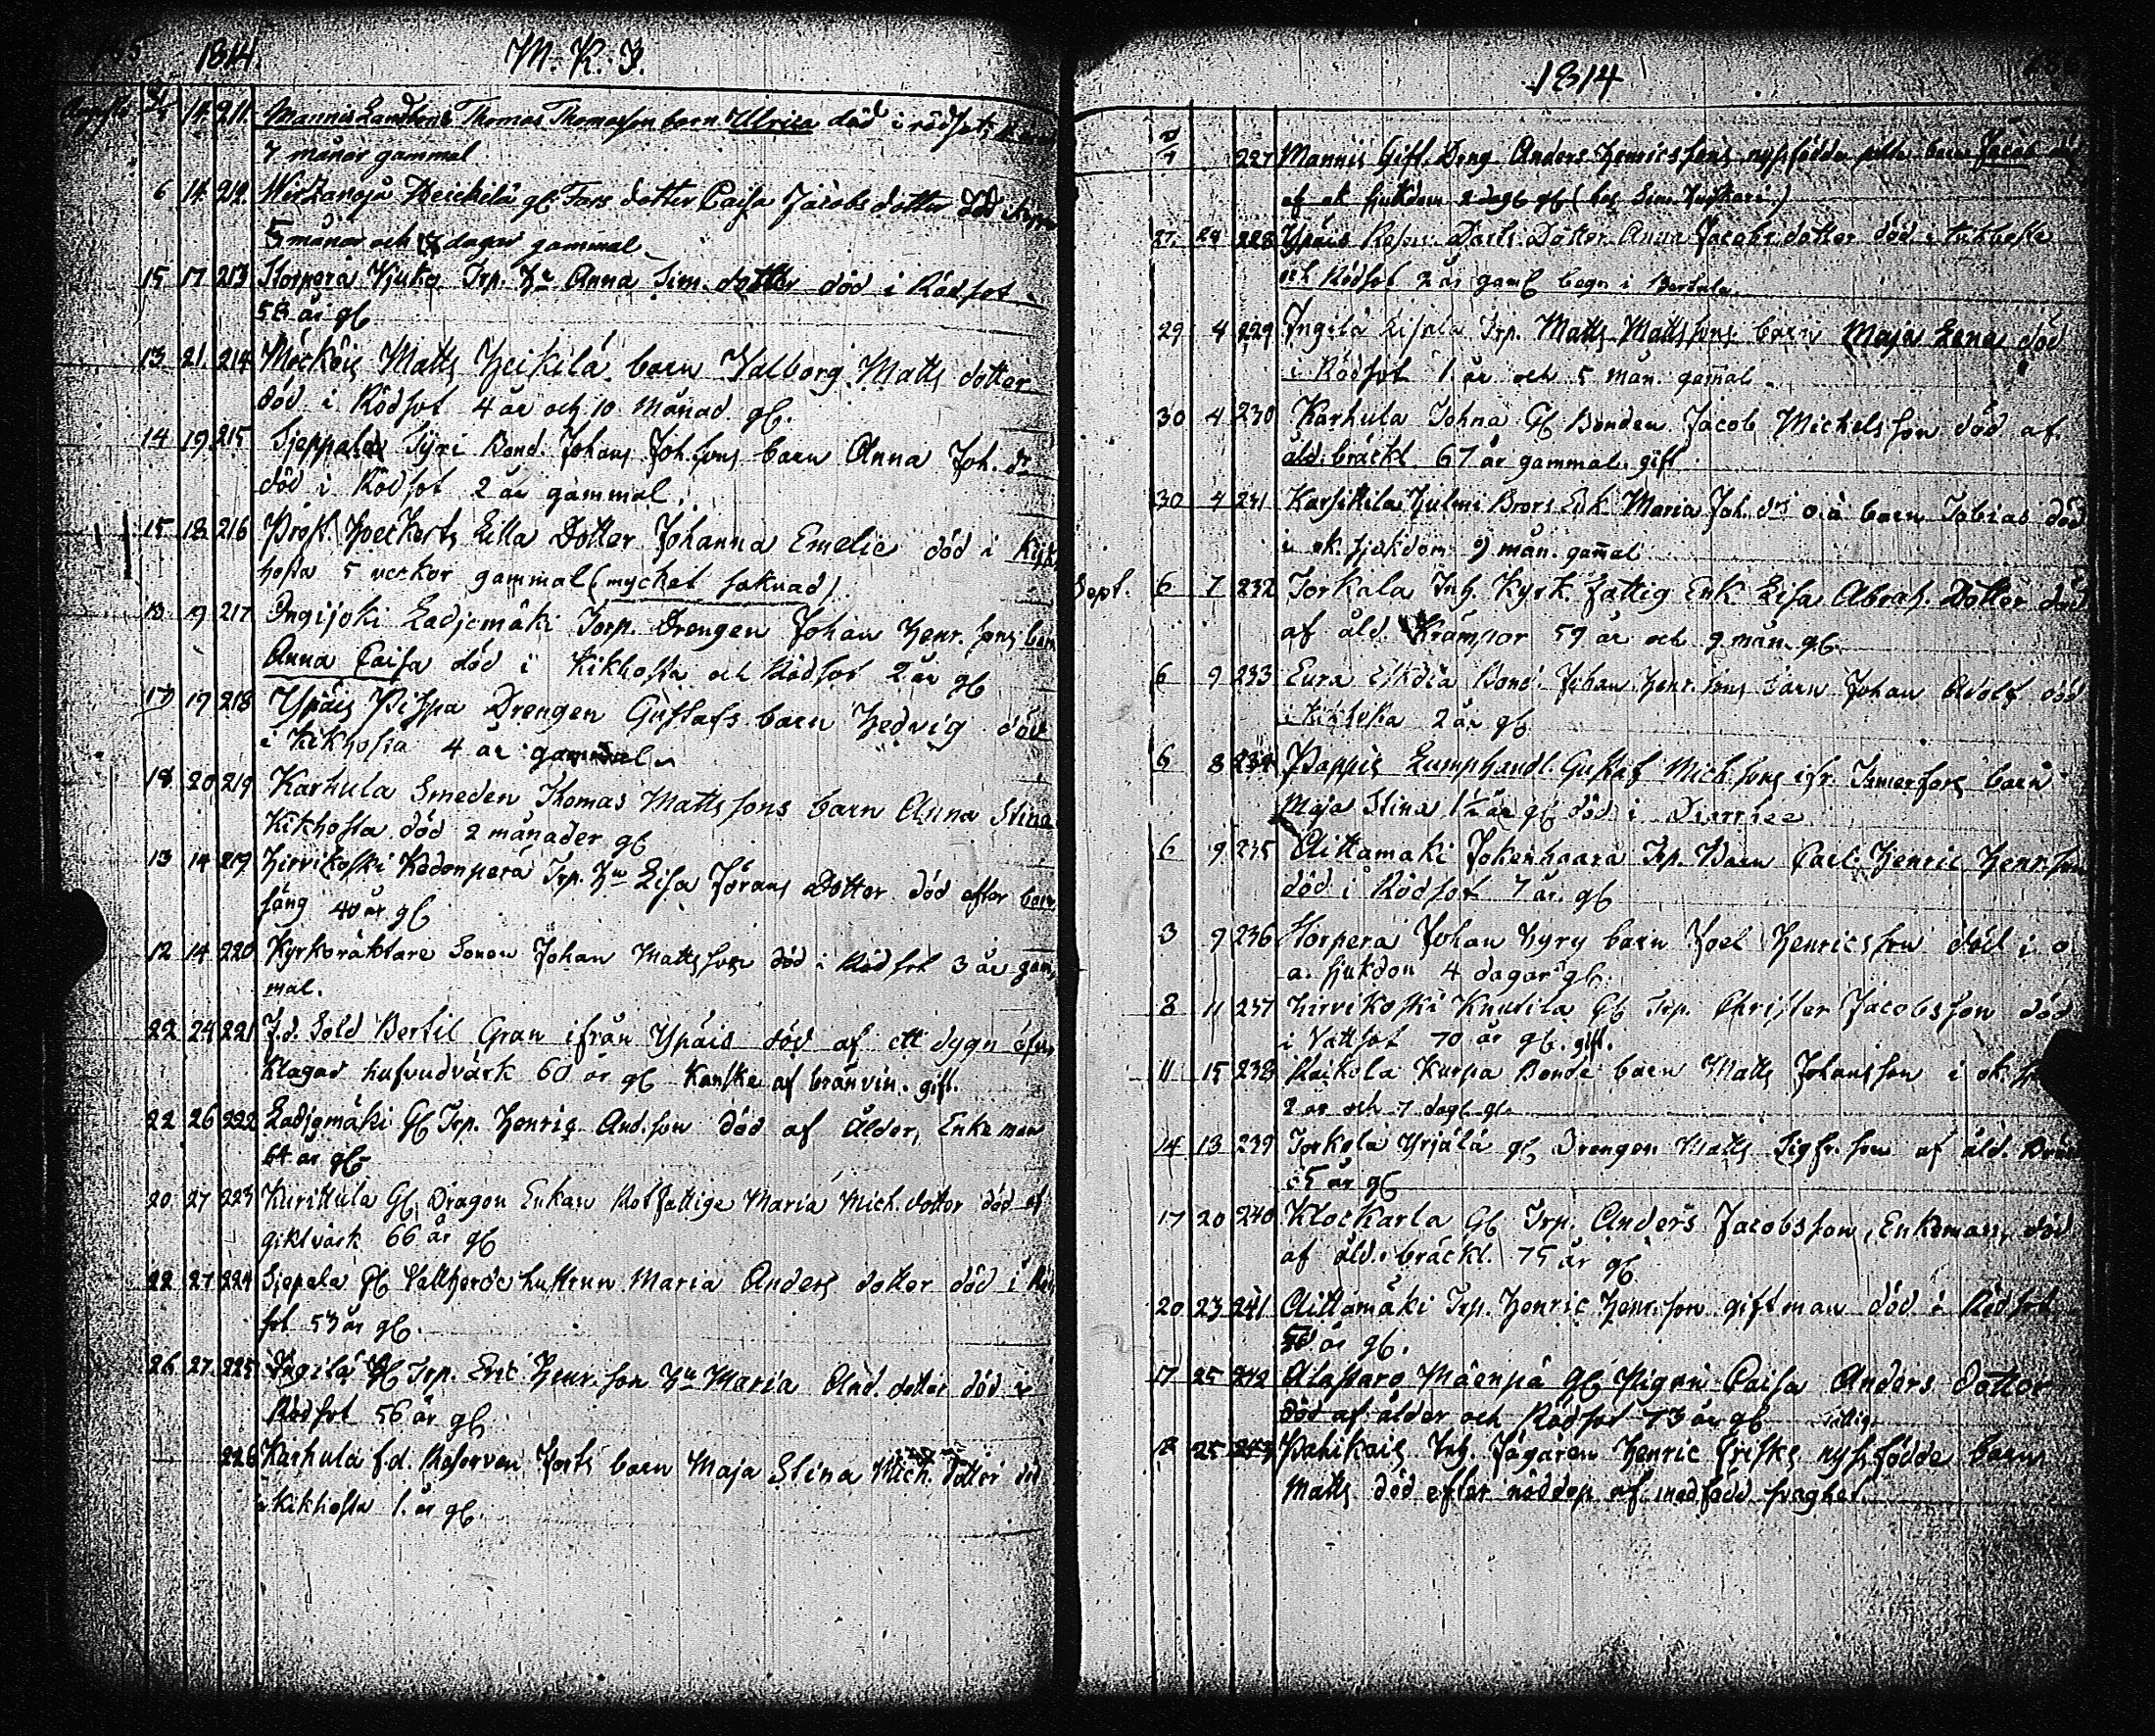 1814. M. K. J.
Augusti 11 211. Mannis Landbond Thomas Thomasson barn Ulrica död i rödsot,
7 månar gammal
6 14 212. Heickelä gl. Fars dotter Caisa Jacobs dotter död
5 månar och dagar gammal
15 17 213 Storperä Kjuko Trp. Hu Anna Sim. dotter död i Rödsot
58 år gl
13 21. 214 Möcköis Matts Heikilä barn Valborg Matts dotter
död i Rödsot 4 år och 10 Månad gl.
14 19. 215 Sjeppala Syri Bond. Johans Joh. sons barn Anna Joh. dr
död i Rödsot 2 år gammal.
15 18 216 Prost. Hoeckerts Lilla Dotter Johanna Emelie död i Kik
hosta 5 veckor gammal (mycket saknad)
13 19 217 Ingijoki Ladjemäki Torp. Drengen Johan Henr. sons barn
Anna Caisa död i Kikhosta och Rödsot 2 år gl
17 19 218 Ypäis Pispa Drengen Gustafs barn Hedvig död
i Kikhosta 4 år gammal
18 20 219 Karhula Smeden Thomas Mattssons barn Anna Stina
Kikhosta död 2 månader gl
13 14 219 Hirvikoski Kedonperä Trp. Hu Lisa Jörans Dotter död efter barn
säng 40 år gl
12 14 220 Kyrkoväktare Sonen Johan Mattsson död i Rödsot 3 år gam
mal.
22 24 221 F.d. Sold Bertil Gran ifrån Ypäis död af ett dygn öfver
klagad hufvudvärk 60 år gl Kanske af bränvin. gift.
22 26 222 Ladjemäki Gl Trp. Henric And. son död af Ålder, Enkeman
64 år gl
20 27 223 Kurittula Gl Dragon Enkan Rotfattige Maria Mich. dotter död af
giktvärk 66 år gl
22 27 224 Sjepala Gl Vallherde hustrun Maria Anders dotter död i Röd
sot 53 år gl.
26 27. 225 Ingilä Gl Trp. Eric Henr. son Hu Maria And. dotter död i
Rödsot 56 år gl
226 Karhula f.d. Reserven barn Maja Stina Mich. dotter död
i Kikhosta 1. år gl.
1814
227 Mannis Giff. Deng Anders Henricssons nyssfödde barn Jacob
af ok sjukdom 2 dagl gl
27. 28 228 Ypäis Dotter Anna Jacobs dotter död i Kikhosta
och Rödsot 2 år gaml begr i
29 4 229 Ingilä Trp. Matts Mattssons barn Maja Lena död
i Rödsot 1 år och 5 mån. gamal.
30 4 230 Karhula Johna Gl Bonden Jacob Michelsson död af
åld. bräckl 67 år gammal. gift
30 4 231 Karsikila Hulmi Brors Enk Maria Joh. drs o.ä barn Tobias död
i ok. sjukdom 9 mån. gamal
Sept. 6 7 232 Torkala Inh. Kyrk. fattig Enk Lisa Abrah. Dotter död
af åld. Krämpor 59 år och 9 mån. gl.
6 9 233 Eura Eskola Bond. Johan Henr. sons barn Johan Adolf död
i Kikhosta 2 år gl
6 8 234 Pappis Lumphandl. Gustaf Mich. sons ifr. Tamerfors barn
Maja Stina 1½ år gl död i Diarrhee
6 9 235 Aittamäki Jokenhaara Trp. Barn Carl Henric Henr. son
död i Rödsot 7 år. gl
3 9 236 Storpera Johan Kyry barn Joel Henricsson död i o
a. sjukdom 4 dagar gl.
8 11 237 Hirvikoski Knutila Gl Trp. Christer Jacobsson död
i Vattsot 70 år gl. gift.
11 15 238 Raikola Kurpa Bonde barn Matts Johansson i ok
2 år och 7 dagl gl.
14 13 239 Torkola Yrjälä gl Drengen Matts Sigfr. son af åld. Bräck
år gl
17 20 240 Klockarla Gl Trp. Anders Jacobsson, Enkeman, död
af åld. bräckl. 75 år gl
20 23 241 Aittamäki Trp. Henric Henr. son giftman död i Rödsot
56 år gl.
17 25 242 Alastaro Mäenpä gl Pigan Caisa Anders dotter
död af ålder och Rödsot 73 år gl
12 25 243 Pahikais Inh. Jägaren Henric Frisks nyssfödde barn
Matts död efter nöddop af medfödd svaghet.